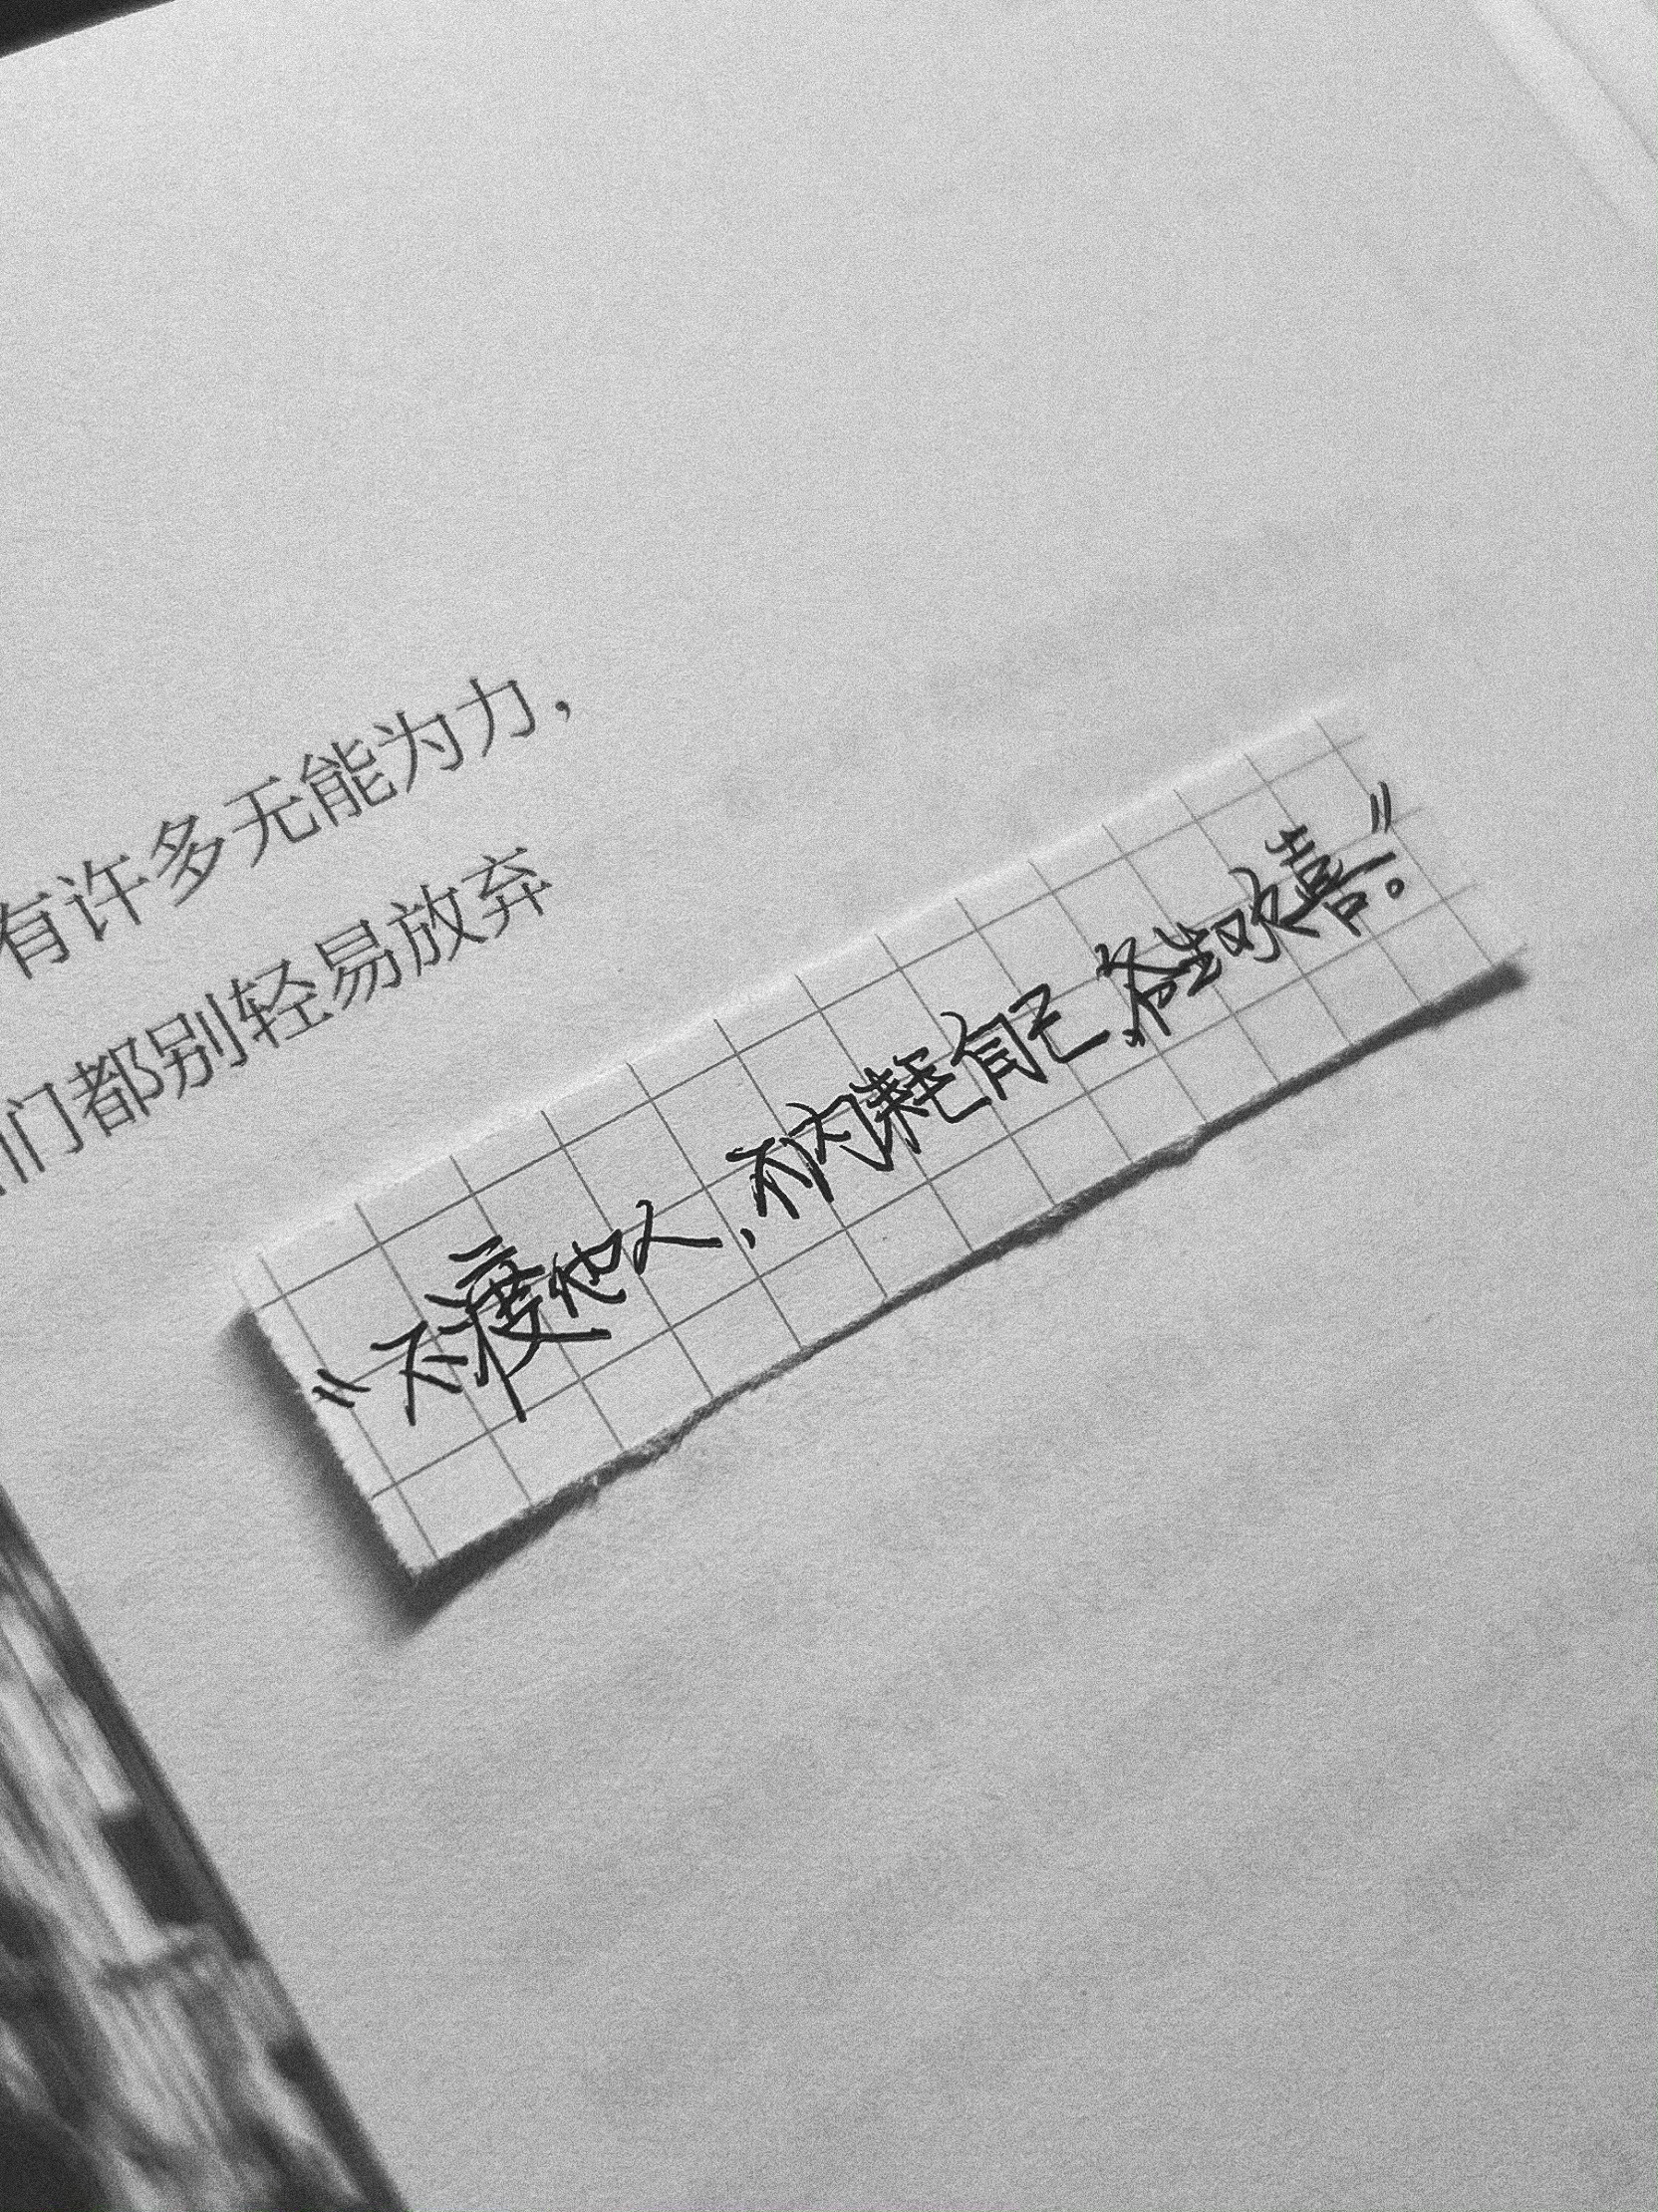 有许多无能为力，
们都别轻易放弃
“不渡他人，不内耗自己，各生欢喜。”